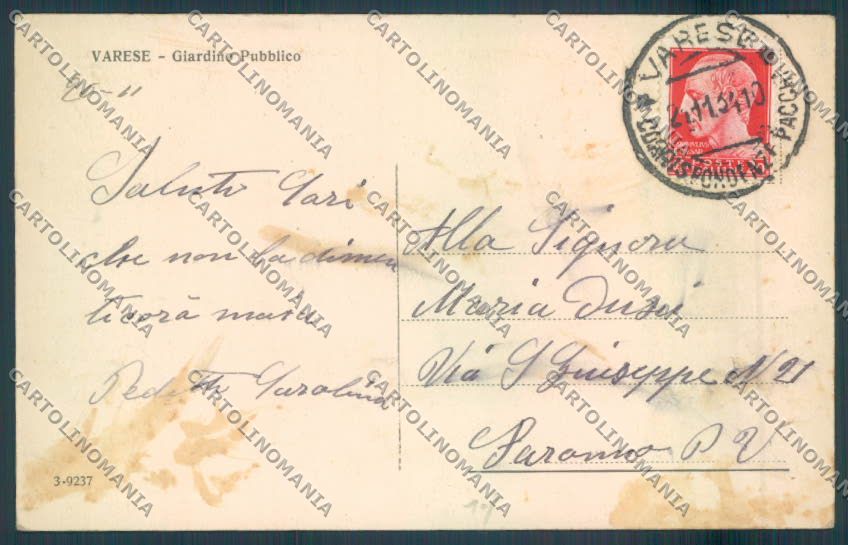 VARESE - Giardino Pubblico
VARESE
CORRISPONDENZE PACCHI
Saluti Cari
che non la dimen
ticorà mai
Carolina
Alla Signora
Maria Dusi
Via S Giuseppe N 21
Saronno P V
3-9237
CARTOLINOMANIA